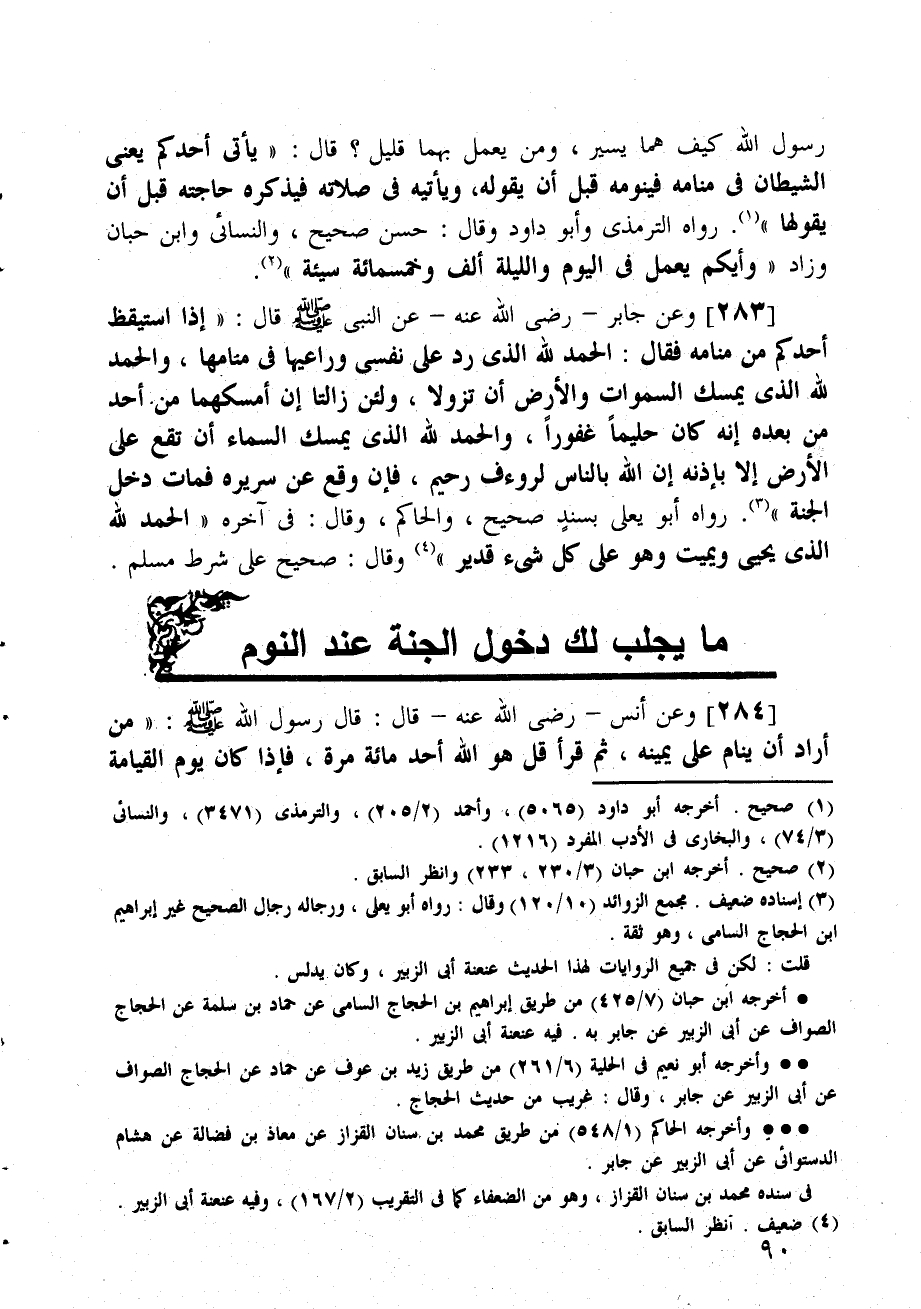 رسول الله كيف هما يسير ، ومن يعمل بهما قليل ؟ قال : « يأتى أحدكم يعنى
الشيطان فى منامه فينومه قبل أن يقوله، ويأتيه فى صلاته فيذكره حاجته قبل أن
يقولها »(١). رواه الترمذى وأبو داود وقال : حسن صحيح ، والنسائى وابن حبان
وزاد « وأيكم يعمل فى اليوم والليلة ألف وخمسمائة سيئة »(٢).
[٢٨٣] وعن جابر – رضى الله عنه – عن النبى ﷺ قال : « إذا استيقظ
أحدكم من منامه فقال : الحمد لله الذى رد على نفسى وراعيها فى منامها ، والحمد
لله الذى يمسك السموات والأرض أن تزولا ، ولئن زالتا إن أمسكهما من أحد
من بعده إنه كان حليماً غفوراً ، والحمد لله الذى يمسك السماء أن تقع على
الأرض إلا بإذنه إن الله بالناس لروءف رحيم ، فإن وقع عن سريره فمات دخل
الجنة »(٣). رواه أبو يعلى بسندٍ صحيح ، والحاكم ، وقال : فى آخره « الحمد لله
الذى يحيى ويميت وهو على كل شىء قدير »(٤) وقال : صحيح على شرط مسلم .
ما يجلب لك دخول الجنة عند النوم
[٢٨٤] وعن أنس – رضى الله عنه – قال : قال رسول الله ﷺ : « من
أراد أن ينام على يمينه ، ثم قرأ قل هو الله أحد مائة مرة ، فإذا كان يوم القيامة
(١) صحيح . أخرجه أبو داود (٥٠٦٥) ، وأحمد (٢٠٥/٢) ، والترمذى (٣٤٧١) ، والنسائى
(٧٤/٣) ، والبخارى فى الأدب المفرد (١٢١٦) .
(٢) صحيح . أخرجه ابن حبان (٢٣٠/٣ ، ٢٣٣) وانظر السابق .
(٣) إسناده ضعيف . مجمع الزوائد (١٢٠/١٠) وقال : رواه أبو يعلى ، ورجاله رجال الصحيح غير إبراهيم
ابن الحجاج السامى ، وهو ثقة .
قلت : لكن فى جميع الروايات لهذا الحديث عنعنة أبى الزبير ، وكان يدلس .
● أخرجه ابن حبان (٤٢٥/٧) من طريق إبراهيم بن الحجاج السامى عن حماد بن سلمة عن الحجاج
الصواف عن أبى الزبير عن جابر به . فيه عنعنة أبى الزبير .
●● وأخرجه أبو نعيم فى الحلية (٢٦١/٦) من طريق زيد بن عوف عن حماد عن الحجاج الصواف
عن أبى الزبير عن جابر ، وقال : غريب من حديث الحجاج .
●●● وأخرجه الحاكم (٥٤٨/١) من طريق محمد بن سنان القزاز عن معاذ بن فضالة عن هشام
الدستوائى عن أبى الزبير عن جابر .
فى سنده محمد بن سنان القزاز ، وهو من الضعفاء كما فى التقريب (١٦٧/٢) ، وفيه عنعنة أبى الزبير .
(٤) ضعيف . انظر السابق .
٩٠